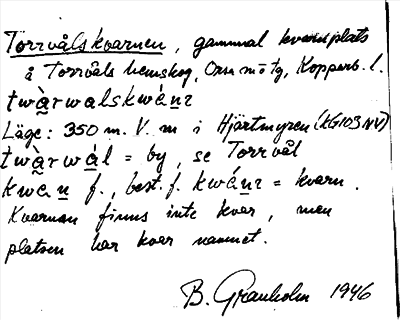 Torrvålskvarnen, gammal kvarnplats
å Torrvåls hemskog, Orsa m o tg, Kopparb. l.
twàrwalskwán̲z
Läge: 350 m. V. m i Hjärtmyren (KG103NV)
twàrwál = by, se Torrvål
kwan̲ f., best. f. kwán̲z = kvarn.
Kvarnan finns inte kvar, men
platsen har kvar namnet.
B. Granholm 1946